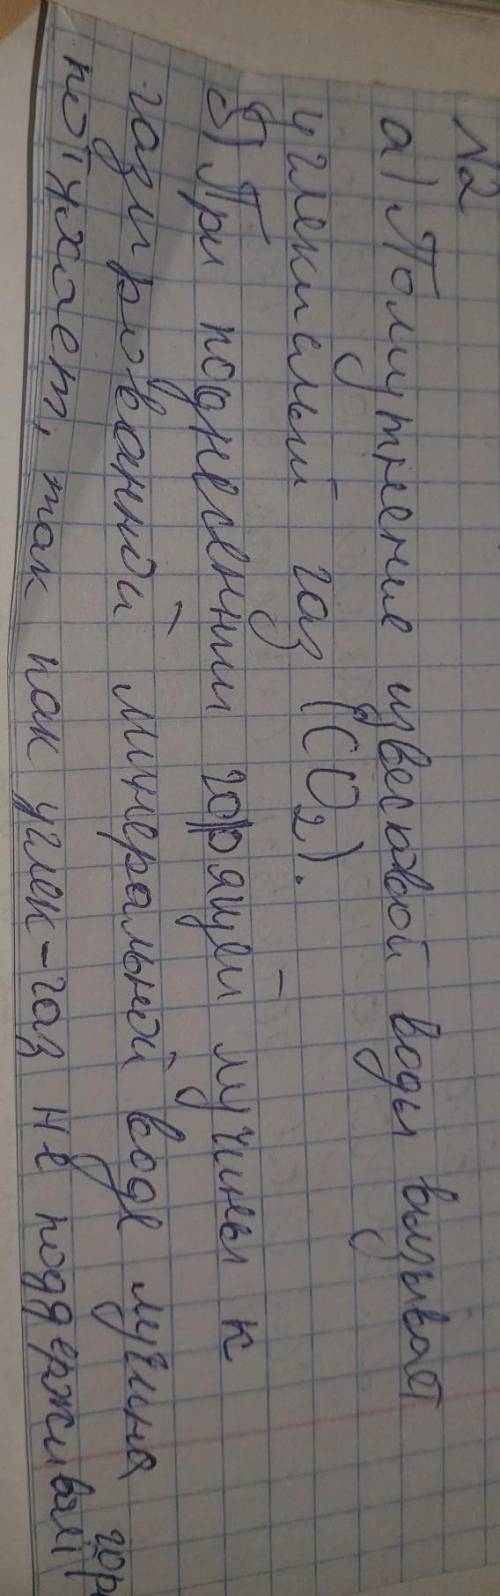 №2
а) Помутнение известковой воды вызывает
углекислый газ (CO₂).
б) При поднесении горящей лучины к
газированной минеральной воде лучина
потухает, так как углек-газ не поддерживает